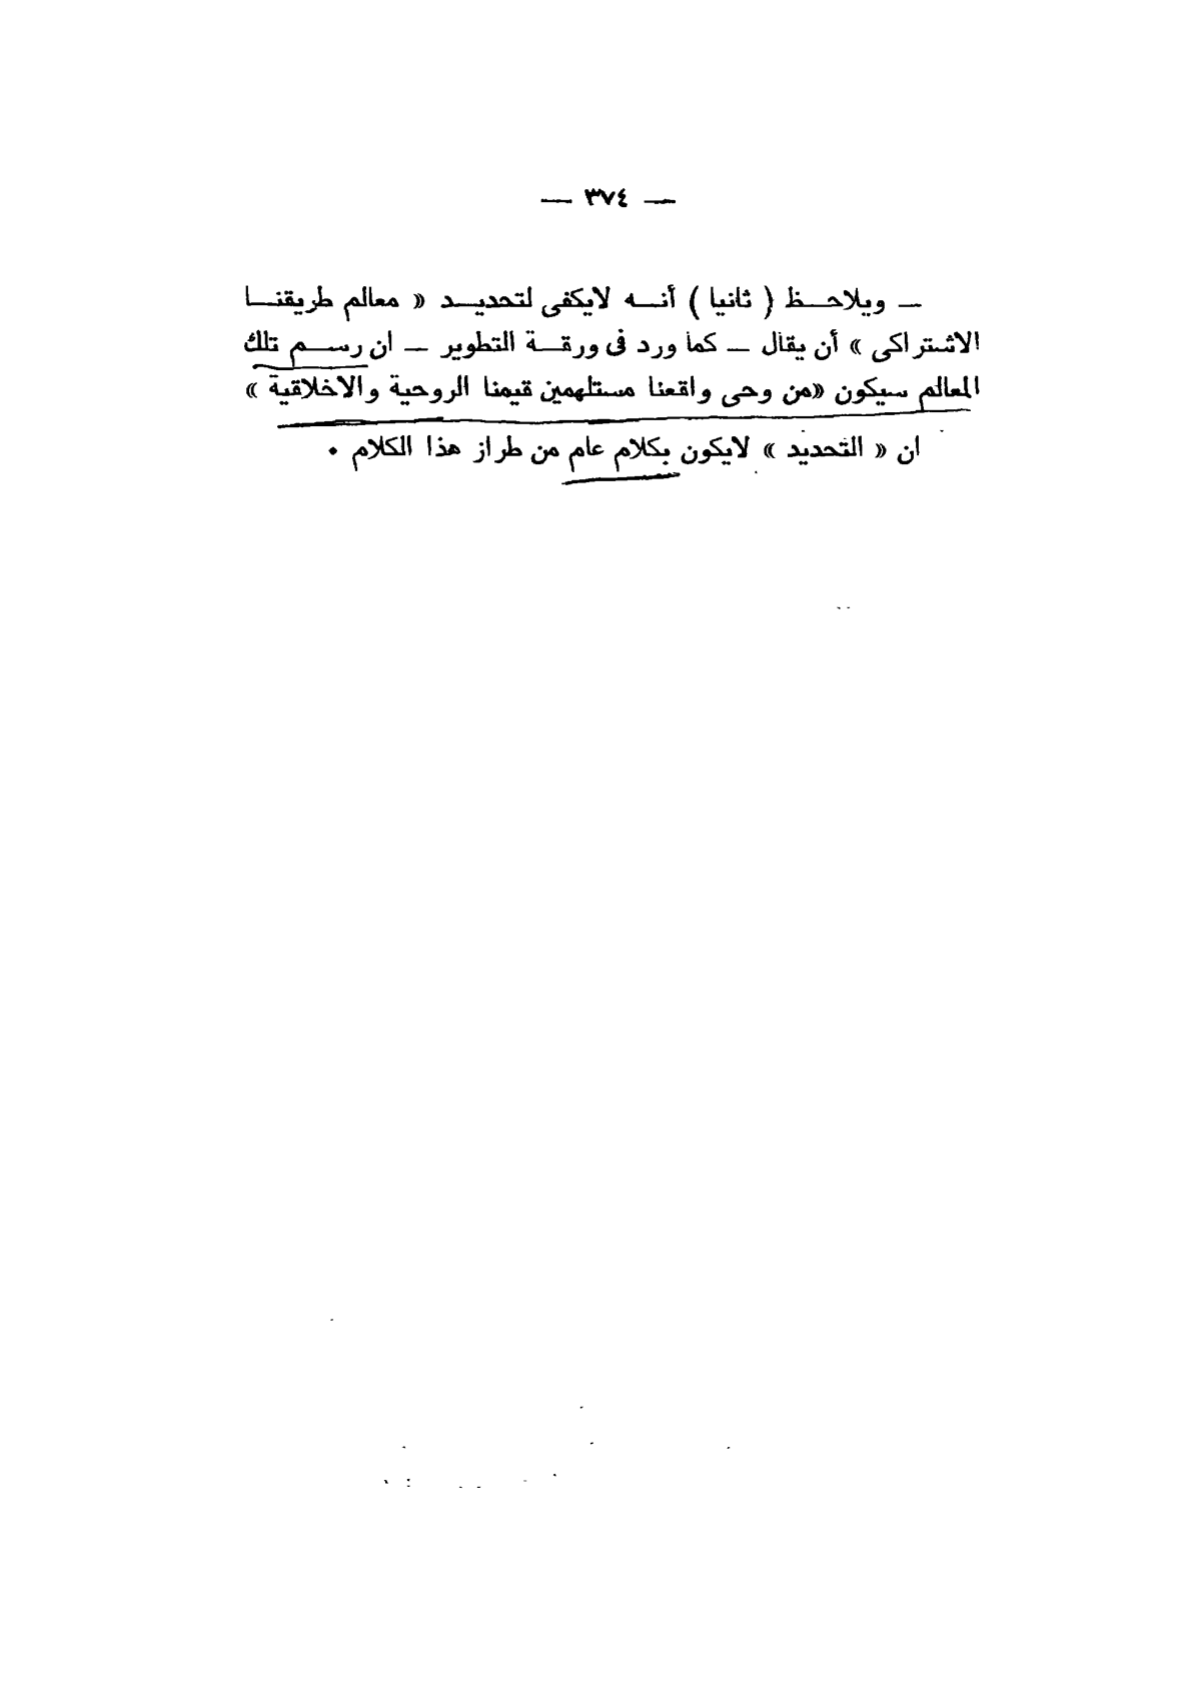 — ٣٧٤ —
— ويلاحـظ ( ثانيا ) أنـه لايكفى لتحديـد « معالم طريقنـا
الاشتراكى » أن يقال — كما ورد فى ورقـة التطوير — ان رسـم تلك
المعالم سيكون «من وحى واقعنا مستلهمين قيمنا الروحية والاخلاقية »
ان « التحديد » لايكون بكلام عام من طراز هذا الكلام •